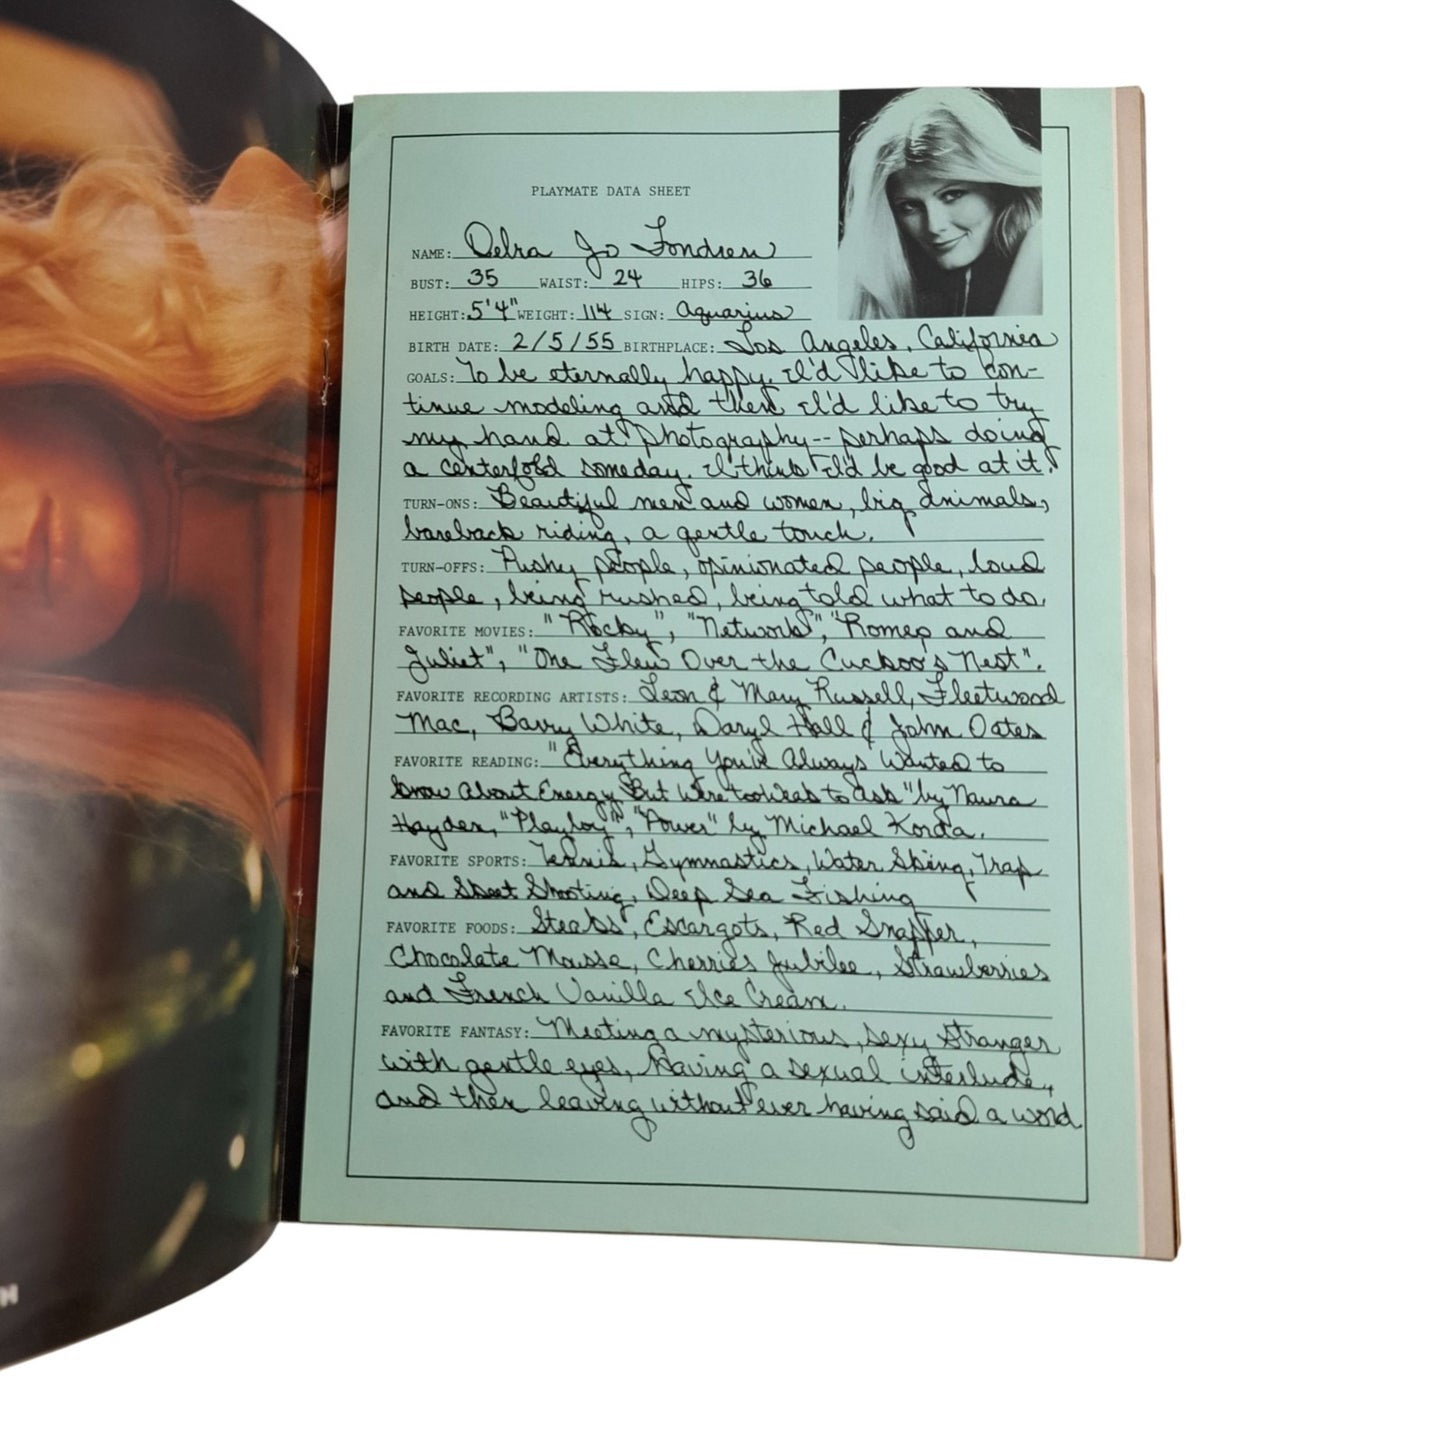 PLAYMATE DATA SHEET
NAME: Debra Jo Fondren
BUST: 35 WAIST: 24 HIPS: 36
HEIGHT: 5'4" WEIGHT: 114 SIGN: Aquarius
BIRTH DATE: 2/5/55 BIRTHPLACE: Los Angeles, California
GOALS: To be eternally happy. I'd like to con-
tinue modeling and then I'd like to try
my hand at photography -- perhaps doing
a centerfold someday. I think I'd be good at it.
TURN-ONS: Beautiful men and women, big animals,
bareback riding, a gentle touch.
TURN-OFFS: Pushy people, opinionated people, loud
people, being rushed, being told what to do.
FAVORITE MOVIES: "Rocky", "Network", "Romeo and
Juliet", "One Flew Over the Cuckoo's Nest".
FAVORITE RECORDING ARTISTS: Leon & Mary Russell, Fleetwood
Mac, Barry White, Daryl Hall & John Oates
FAVORITE READING: "Everything You've Always Wanted to
Know About Energy But Were too Weak to Ask" by Naura
Hayden, "Playboy", "Power" by Michael Korda.
FAVORITE SPORTS: Tennis, Gymnastics, Water Skiing, Trap
and Skeet Shooting, Deep Sea Fishing
FAVORITE FOODS: Steaks, Escargots, Red Snapper,
Chocolate Mousse, Cherries Jubilee, Strawberries
and French Vanilla Ice Cream.
FAVORITE FANTASY: Meeting a mysterious, sexy stranger
with gentle eyes, having a sexual interlude,
and then leaving without ever having said a word